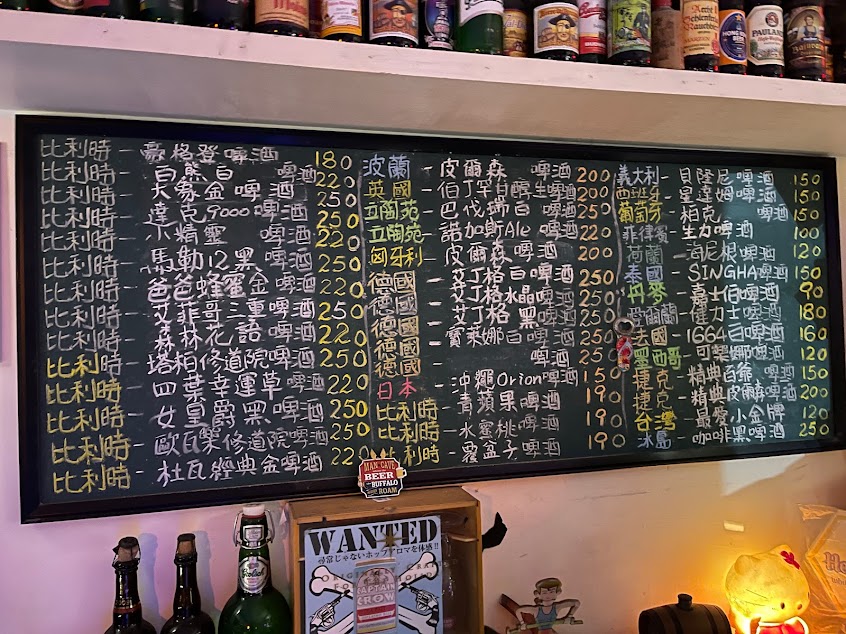 PAULANER
比利時 - 豪格登啤酒 180
比利時 - 白熊白 啤酒 220
比利時 - 大象金啤酒 250
比利時 - 達克9000啤酒 250
比利時 - 小精靈 啤酒 220
比利時 - 馬勒12黑啤酒 250
比利時 - 爸爸蜂蜜金啤酒 220
比利時 - 艾菲哥三重啤酒 250
比利時 - 森林花語啤酒 220
比利時 - 塔柏修道院啤酒 250
比利時 - 四葉幸運草啤酒 220
比利時 - 女皇爵黑啤酒 250
比利時 - 歐瓦樂修道院啤酒 250
比利時 - 杜瓦經典金啤酒 220
波蘭 - 皮爾森 啤酒 200
英國 - 伯丁罕醇生啤酒 200
立陶苑 - 巴伐瑞白 啤酒 250
立陶苑 - 諾加斯Ale啤酒 220
匈牙利 - 皮爾森 啤酒 200
德國 - 艾丁格白啤酒 250
德國 - 艾丁格水晶啤酒 250
德國 - 艾丁格黑 啤酒 250
德國 - 寶萊娜白啤酒 250
德國 - 啤酒 250
日本 - 沖繩Orion啤酒 150
比利時 - 青蘋果啤酒 190
比利時 - 水蜜桃啤酒 190
比利時 - 覆盆子啤酒 190
義大利 - 貝隆尼啤酒 150
西班牙 - 星達姆啤酒 150
葡萄牙 - 柏克 啤酒 150
菲律賓 - 生力啤酒 100
荷蘭 - 海尼根啤酒 120
泰國 - SINGHA啤酒 150
丹麥 - 嘉士伯啤酒 90
健力士啤酒 180
法國 - 1664白啤酒 160
墨西哥 - 可樂娜啤酒 120
捷克 - 精典百爺 啤酒 150
捷克 - 精典皮爾森啤酒 200
台灣 - 最愛小金牌 120
冰島 - 咖啡黑啤酒 250
MAN CAVE
BEER
BUFFALO
ROAM
WANTED
尋常じゃないホップアロマを体感!!
CAPTAIN
CROW
Grolsch